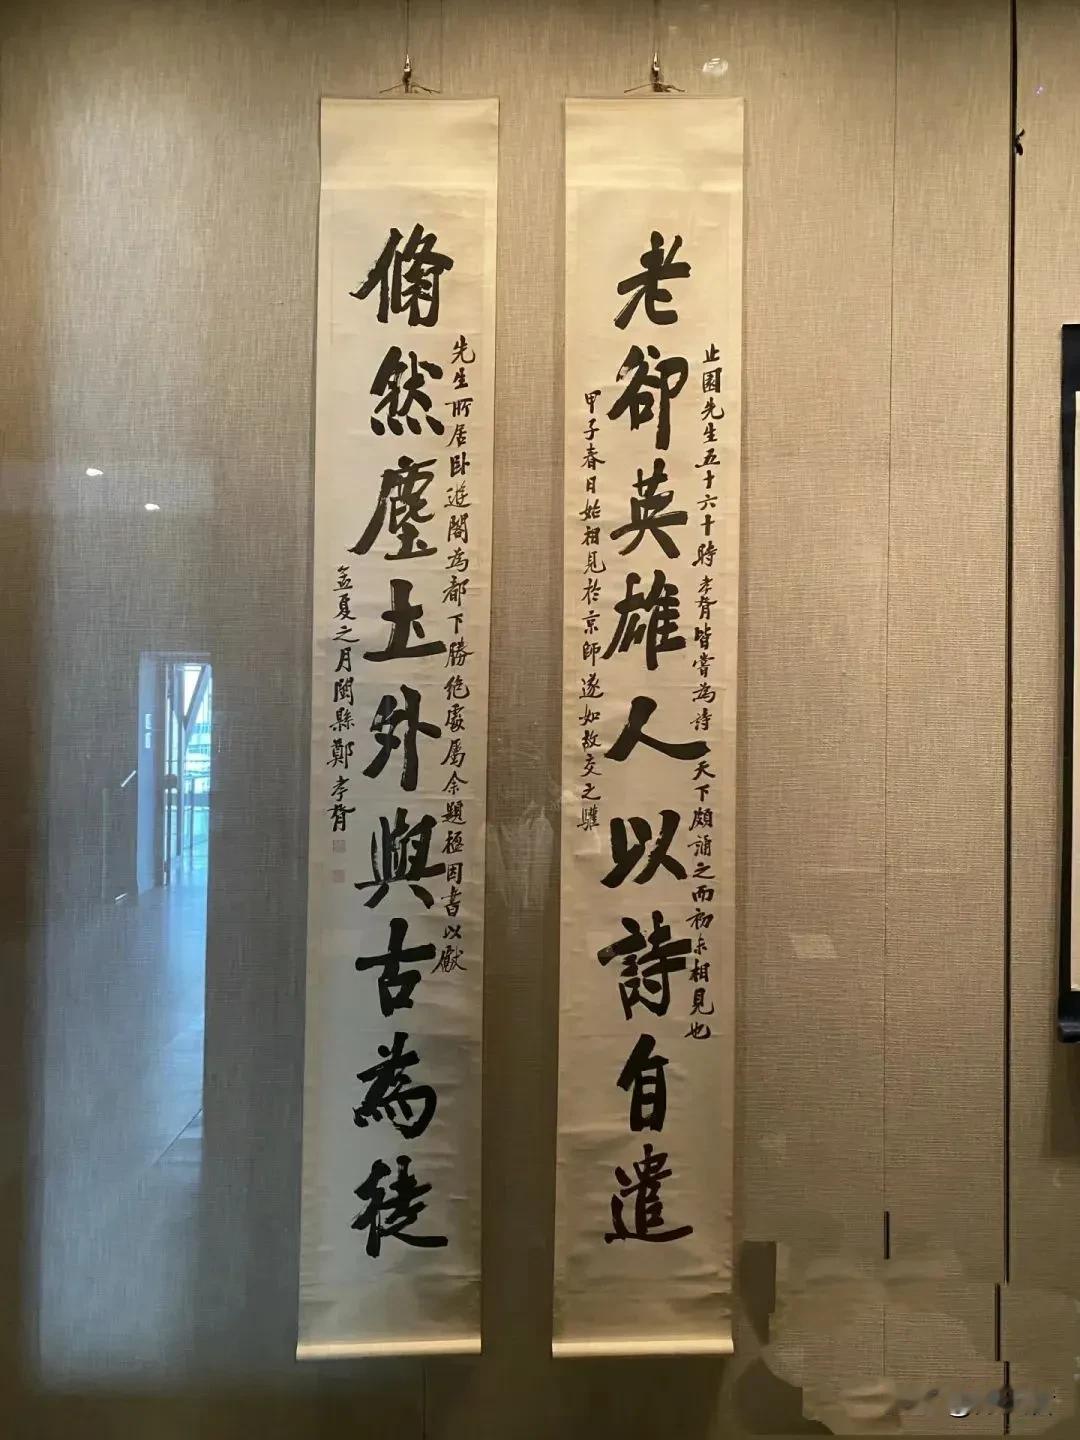 老卻英雄人以詩自遣
止園先生五十六十時孝胥皆嘗為詩天下頗誦之而初未相見也
甲子春日始相見於京師遂如故交之驩
翛然塵土外與古為徒
先生所居卧遊閣為都下勝絕處屬余題楹因書以獻
孟夏之月閩縣鄭孝胥